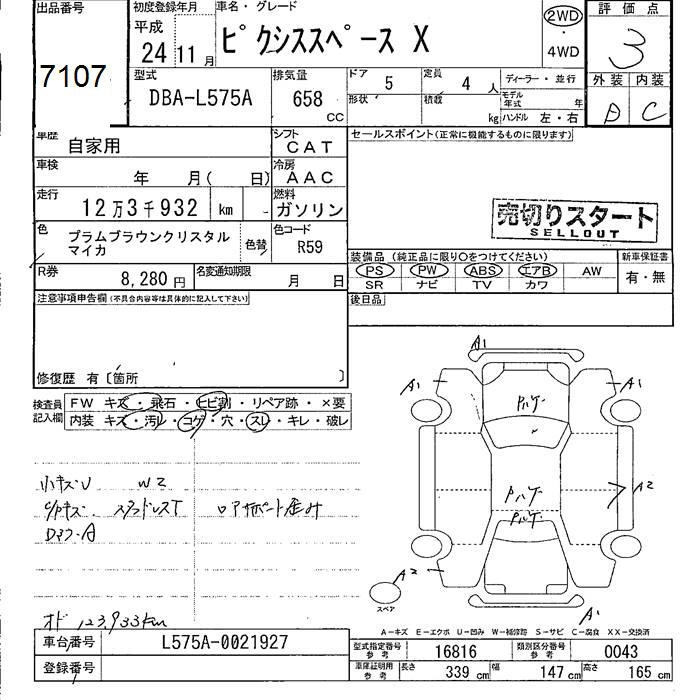 出品番号 初度登録年月 車名・グレード 評価点
7107 平成 24 11月 ピクシススペース X 2WD ・ 4WD 3
型式 DBA-L575A 排気量 658 CC ドア 5 定員 4 人 ディーラー・並行 外装 内装
形状 積載 kg モデル年式 年 ハンドル 左・右 D C
車歴 自家用 シフト CAT セールスポイント(正常に機能するものに限ります)
車検 年 月( 日) 冷房 AAC
走行 12万3千932 km 燃料 ガソリン 売切りスタート
SELLOUT
色 プラムブラウンクリスタルマイカ 色替 色コード R59
装備品(純正品に限り〇をつけてください) 新車保証書
PS PW ABS エアB AW 有・無
R券 8,280円 名変通知期限 月 日 SR ナビ TV カワ
注意事項申告欄(不具合内容等は具体的に記入して下さい) 後日品
修復歴 有〔箇所 〕
検査員記入欄 FW キズ・飛石・ヒビ割・リペア跡・×要
内装 キズ・汚レ・コゲ・穴・スレ・キレ・破レ
A1
A1 A1
小キズU W2
スタッドレスT ロアサポート歪み
A2
A2
スペア
A1
オド 123,933km
A-キズ E-エクボ U-凹み W-補修跡 S-サビ C-腐食 XX-交換済
車台番号 L575A-0021927 型式指定番号 参考 16816 類別区分番号 参考 0043
登録番号 車庫証明用 参考 長さ 339 cm 幅 147 cm 高さ 165 cm